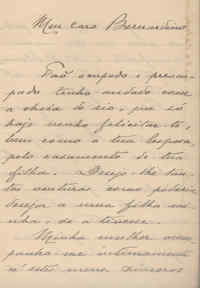 Meu caro Bernardino
Tão occupado e preoccu-
pado tenho andado com
a cheia do rio, que só
hoje venho felicitar-te,
bem como a tua esposa,
pelo casamento de tua
filha. Desejo-lhe tan-
tas venturas, como poderia
desejar a uma filha mi-
nha, se a tivesse.
Minha mulher acom-
panha-me inteiramente
n'estes meus sinceros